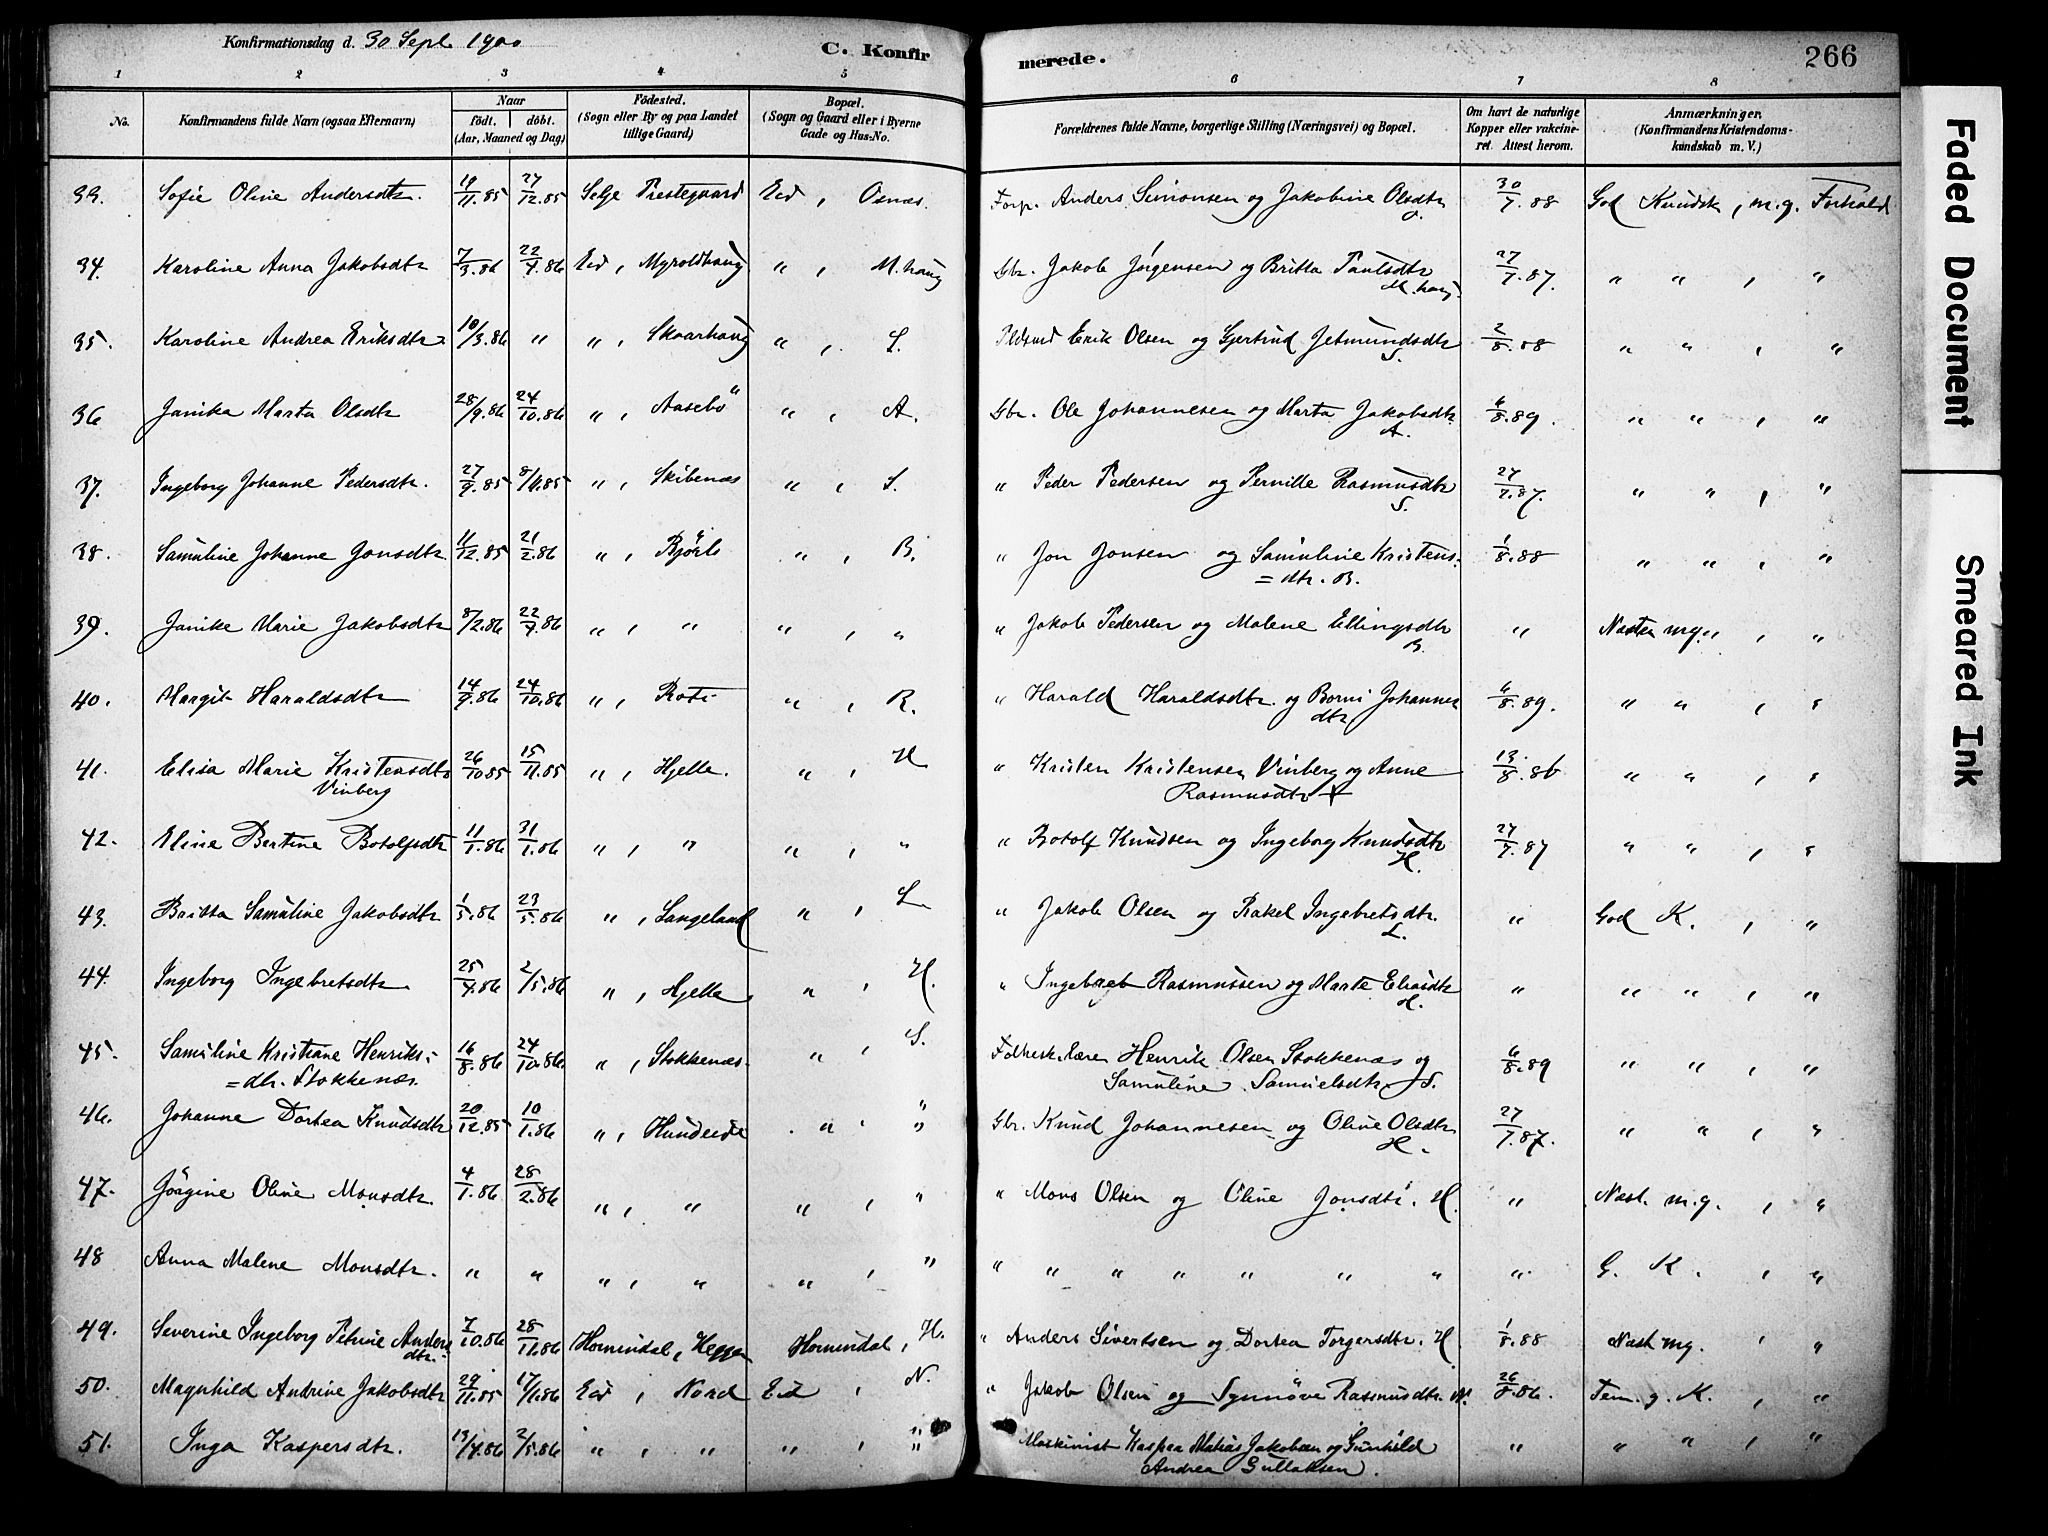 Konfirmationsdag d. 30 Sept. 1900
C. Konfir
merede.
266
1 2 3 4 5 6 7 8
No.
Konfirmandens fulde Navn (ogsaa Efternavn)
Naar
födt. döbt.
(Aar, Maaned og Dag)
Födested.
(Sogn eller By og paa Landet
tillige Gaard)
Bopæl.
(Sogn og Gaard eller i Byerne
Gade og Hus-No.
Forældrenes fulde Navne, borgerlige Stilling (Næringsvei) og Bopæl.
Om havt de naturlige
Kopper eller vakcine-
ret. Attest herom.
Anmærkninger.
(Konfirmandens Kristendoms-
kundskab m. V.)
33. Sofie Oline Andersdtr. 19/11.85 27/12.85 Selje Prestegaard Eid, Osnæs. Forp. Anders Simonsen og Jakobine Olsdtr O. 30/7.88 God Kundsk, m.g. Forhold
34. Karoline Anna Jakobsdtr 7/3.86 22/4.86 Eid, Myroldhaug " , M.haug Gbr. Jakob Jörgensen og Britta Paulsdtr 27/7.87. " " , "
M.haug.
35. Karoline Andrea Eriksdtr 10/3.86 " " , Skaarhaug " , S. Erik Olsen og Gjertrud Jetmundsdtr 2/8.88 " " , "
S.
36 Janika Marta Olsdtr 28/9.86 24/10.86 " , Aasebö " , A. Gbr. Ole Johannesen og Marta Jakobsdtr. 6/8.89. " " , "
A.
37. Ingeborg Johanne Pedersdtr. 27/9.85 8/11.85 " , Skibenæs " , S. " Peder Pedersen og Pernille Rasmusdtr 27/7.87. " " , "
S.
38. Samuline Johanne Jonsdtr 11/12.85 21/2.86 " , Bjørlo " , B. " Jon Jonsen og Samuline Kristens- 1/8.88 " " , "
=dtr. B.
39. Janike Marie Jakobsdtr 8/2.86 22/4.86 " , " " , " " Jakob Pedersen og Malene Ellingsdtr " Næsten mg. " , "
B.
40. Margit Haraldsdtr 14/9.86 24/10.86 " , Roti " , R. " Harald Haraldsdtr. og Borni Johannes 6/8.89. " " , "
dtr
41. Elisa Marie Kristensdtr 26/10.85 15/11.85 " , Hjelle. " , H " Kristen Kristensen Vinberg og Anne 13/8.86 " " , "
Vinberg
Rasmusdtr +
42. Eline Bertine Botolfsdtr 11/1.86 31/1.86 " , " " , " " Botolf Knudsen og Ingeborg Knudsdtr 27/7.87 " " , "
H.
43. Britta Samuline Jakobsdtr 1/5.86 23/5.86 " , Langeland " , L. " Jakob Olsen og Rakel Ingebretsdtr. " God K. , "
L.
44. Ingeborg Ingebretsdtr 25/4.86 2/5.86 " , Hjelle " , H. " Ingebret Rasmussen og Marte Eliasdtr " " " , "
H.
45. Samuline Kristiane Henriks- 16/8.86 24/10.86. " , Stokkenæs. " , S. Folkesk.lærer Henrik Olsen Stokkenæs og 6/8.89 " " , "
=dtr. Stokkenæs.
Samuline Samuelsdtr. S.
46. Johanne Dortea Knudsdtr 20/12.85 10/1.86 " , Hundeide " , " Gbr. Knud Johannesen og Oline Olsdtr 27/7.87. " " , "
H.
47. Jörgine Oline Monsdtr. 4/1.86 28/2.86 " , " " , " " Mons Olsen og Oline Jonsdtr. H. " Næst. m.g. , "
48 Anna Malene Monsdtr. " " " , " " , " " " " " " " " " G. K. , "
49. Severine Ingeborg Petrine Anders 7/10.86 28/11.86 Hornindal, Heggen Hornindal, H. " Anders Sivertsen og Dortea Torgersdtr. H. 1/8.88 Næst mg. , "
dtr.
50. Magnhild Andrine Jakobsdtr 29/11.85 17/1.86 Eid , Nord Eid , N. " Jakob Olsen og Synnöve Rasmusdtr. N. 26/8.86. Tem. g. K. , "
51. Inga Kaspersdtr. 13/4.86 2/5.86 " , " " , " Maskinist Kasper Matias Jakobsen og Gunhild " " " , "
Andrea Gullaksen.
Faded Document
Smeared Ink